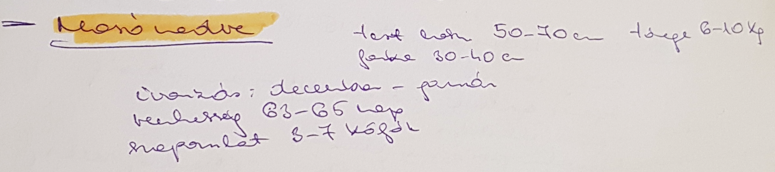 – Mosómedve test hossz 50-70 cm tömege 6-10 Kg
farka 30-40 cm
ivarzás: december - január
vemhesség 63-65 nap
szaporulat 3-7 kölyök